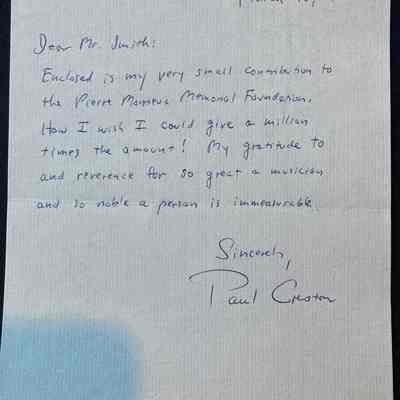 Dear Mr. Smith:
Enclosed is my very small contribution to
the Pierre Monteux Memorial Foundation.
How I wish I could give a million
times the amount! My gratitude to
and reverence for so great a musician
and so noble a person is immeasurable.
Sincerely,
Paul Creston